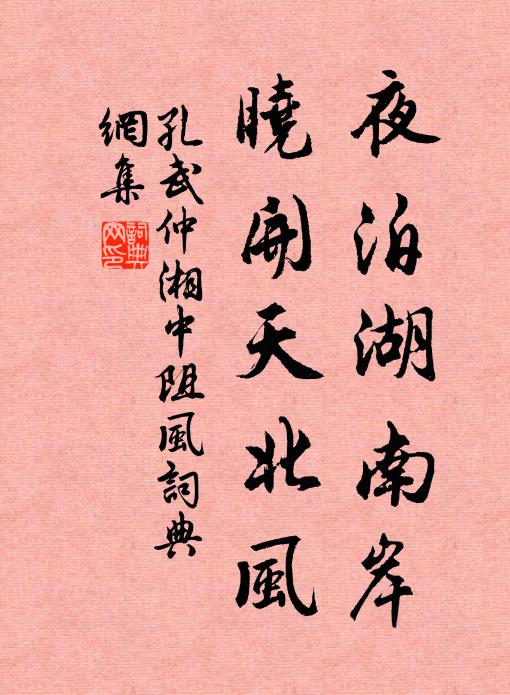 夜泊湖南岸
曉開天北風
孔武仲湘中阻風詞典
網集
詞典
网印